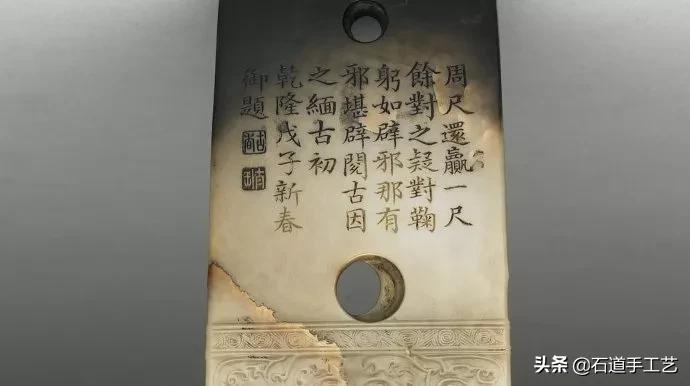 周尺還贏一尺
餘對之疑對鞠
躬如辟邪那有
邪堪辟閱古因
之緬古初
乾隆戊子新春
御題
头条 @石道手工艺